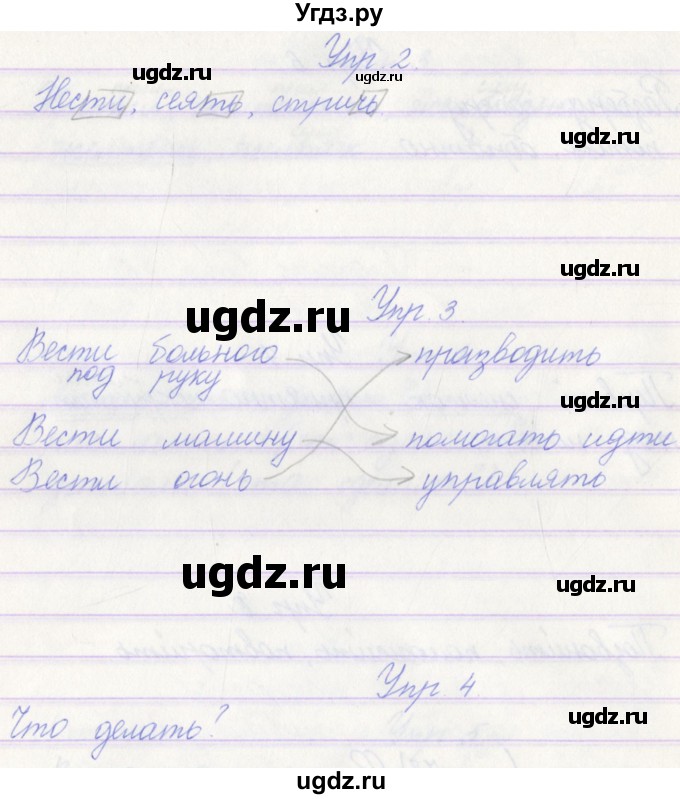 Угдз.ру
Упр. 2.
ugdz.ru ugdz.ru
Нести, сеять, стричь.
ugdz.ru
ugdz.ru
ugdz.ru Упр. 3.
Вести больного празводить
под руку
ugdz.ru
Вести машину помогать идти
Вести огонь управлять
ugdz.ru ugdz.ru
Упр. 4.
Что делать?
ugdz.ru
ugdz.ru